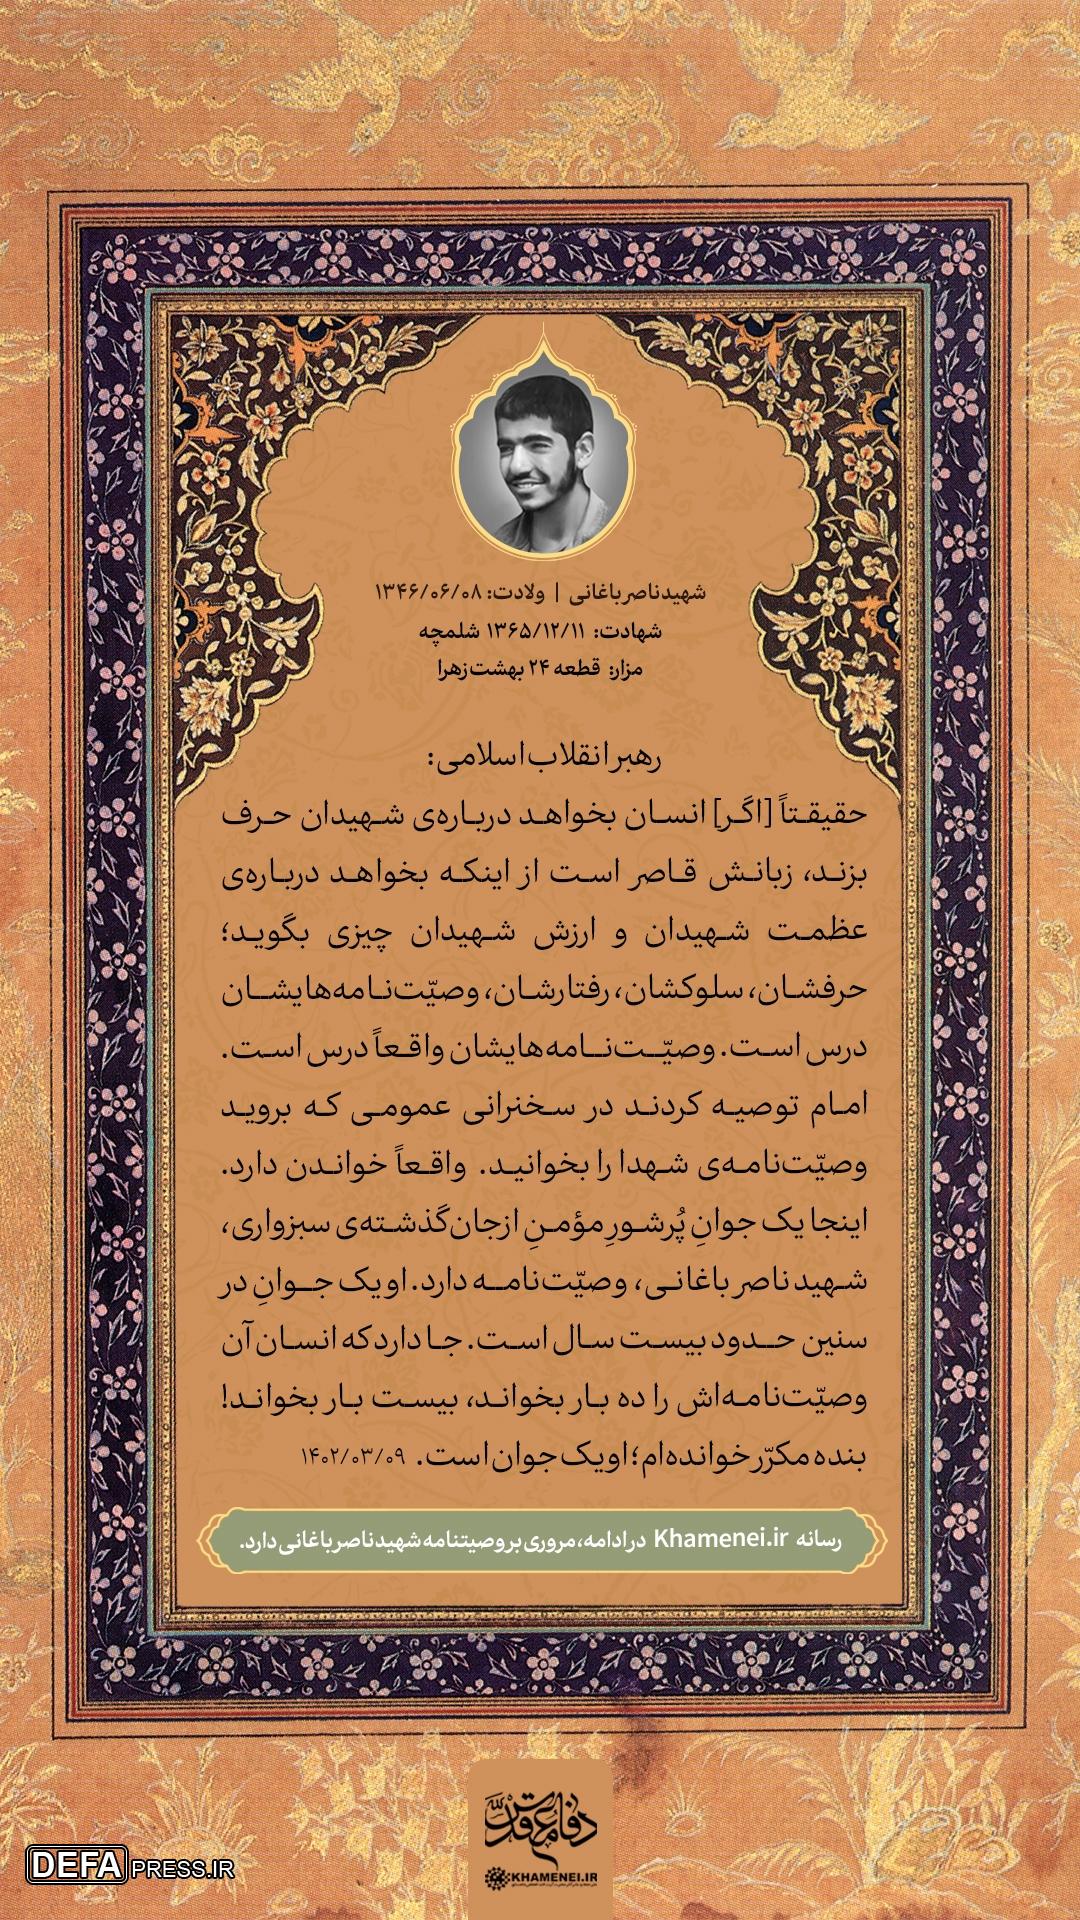 شهید ناصر باغانی | ولادت: ۱۳۴۶/۰۶/۰۸
شهادت: ۱۳۶۵/۱۲/۱۱ شلمچه
مزار: قطعه ۲۴ بهشت زهرا
رهبر انقلاب اسلامی:
حقیقتاً [اگر] انسان بخواهد درباره‌ی شهیدان حرف
بزند، زبانش قاصر است از اینکه بخواهد درباره‌ی
عظمت شهیدان و ارزش شهیدان چیزی بگوید؛
حرفشان، سلوکشان، رفتارشان، وصیّت‌نامه‌هایشان
درس است. وصیّت‌نامه‌هایشان واقعاً درس است.
امام توصیه کردند در سخنرانی عمومی که بروید
وصیّت‌نامه‌ی شهدا را بخوانید. واقعاً خواندن دارد.
اینجا یک جوانِ پُرشورِ مؤمنِ ازجان‌گذشته‌ی سبزواری،
شهید ناصر باغانی، وصیّت‌نامه دارد. او یک جوانِ در
سنین حدود بیست سال است. جا دارد که انسان آن
وصیّت‌نامه‌اش را ده بار بخواند، بیست بار بخواند!
بنده مکرّر خوانده‌ام؛ او یک جوان است. ۱۴۰۲/۰۳/۰۹
رسانه Khamenei.ir در ادامه، مروری بر وصیتنامه شهید ناصر باغانی دارد.
دفاع مقدس
KHAMENEI.IR
DEFAPRESS.IR